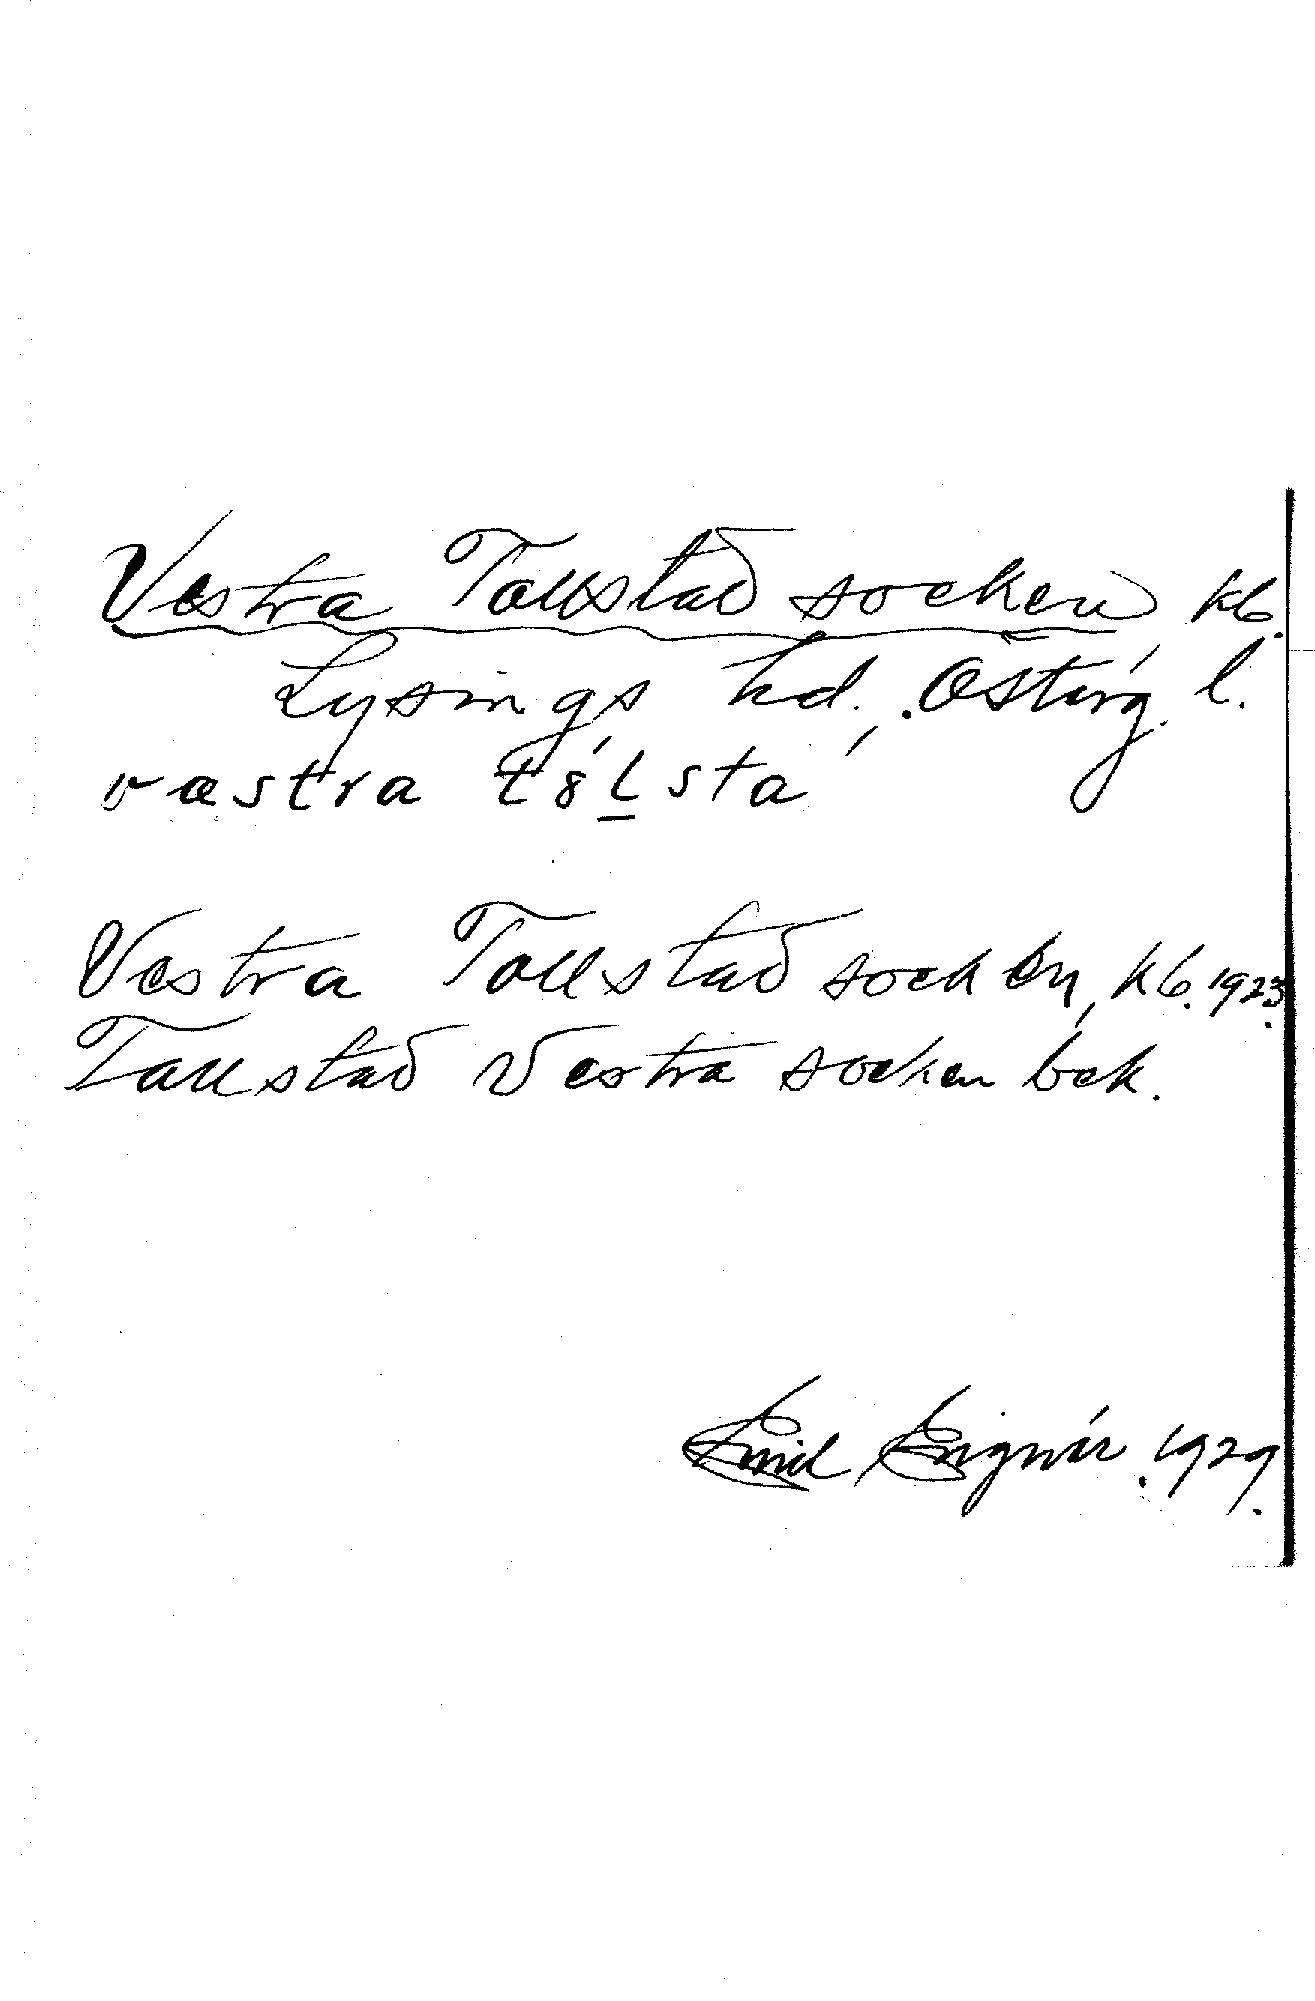 Vestra Tollstad socken, kb.
Lysings hd., Osterg. l.
væstra t8́lsta
Vestra Tollstad socken, kb. 1923.
Tallstad Vestra socken bek.
Emil
1929.